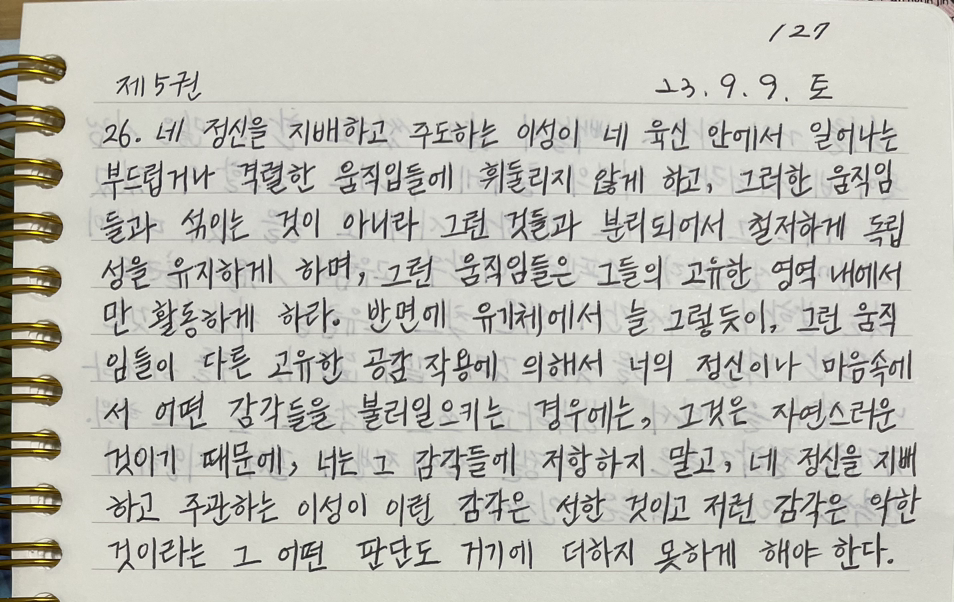 127
제5권 23.9.9. 토
26. 네 정신을 지배하고 주도하는 이성이 네 육신 안에서 일어나는
부드럽거나 격렬한 움직임들에 휘둘리지 않게 하고, 그러한 움직임
들과 섞이는 것이 아니라 그런 것들과 분리되어서 철저하게 독립
성을 유지하게 하며, 그런 움직임들은 그들의 고유한 영역 내에서
만 활동하게 하라. 반면에 유기체에서 늘 그렇듯이, 그런 움직
임들이 다른 고유한 공감 작용에 의해서 너의 정신이나 마음속에
서 어떤 감각들을 불러일으키는 경우에는, 그것은 자연스러운
것이기 때문에, 너는 그 감각들에 저항하지 말고, 네 정신을 지배
하고 주관하는 이성이 이런 감각은 선한 것이고 저런 감각은 악한
것이라는 그 어떤 판단도 거기에 더하지 못하게 해야 한다.